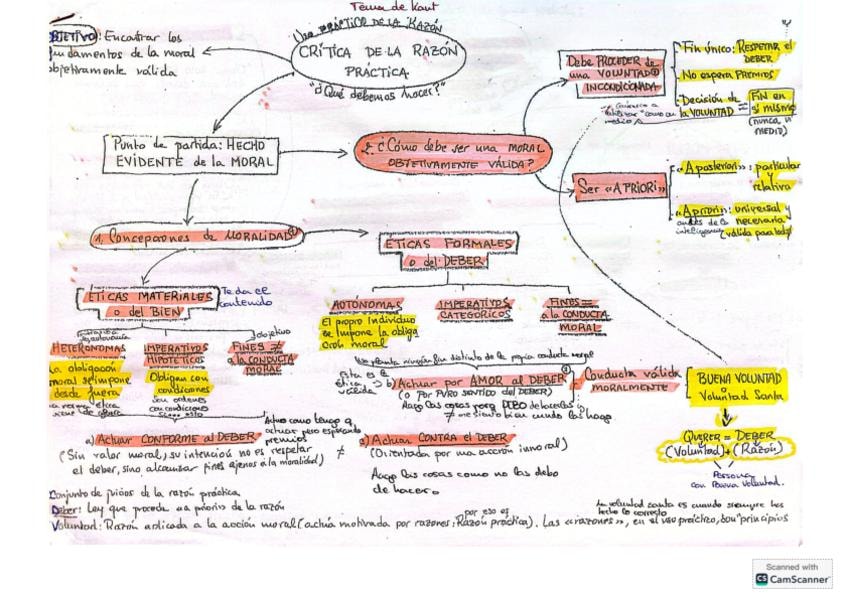 Tema de Kant
Uso PRÁCTICO DE LA RAZÓN
CRÍTICA DE LA RAZÓN
PRÁCTICA
"¿Qué debemos hacer?"
BJETIVO: Encontrar los
fundamentos de la moral
objetivamente válida
Punto de partida: HECHO
EVIDENTE de la MORAL
2. ¿Cómo debe ser una MORAL
OBJETIVAMENTE VÁLIDA?
Debe PROCEDER de
una VOLUNTAD
INCONDICIONADA
Fin único: RESPETAR el
DEBER
No espera PREMIOS
Decisión de la VOLUNTAD = FIN en
sí mismo
(nunca, ni
MEDIO)
Ser «A PRIORI»
«A posteriori»: particular
y
relativa
«A priori»: universal y
antes de la necesaria
inteligencia (válida para todos)
1. Concepciones de MORALIDAD
ÉTICAS FORMALES
o del DEBER
ÉTICAS MATERIALES
o del BIEN
Te da el
contenido
AUTÓNOMAS
El propio individuo
se impone la obliga
ción moral
IMPERATIVOS
CATEGÓRICOS
FINES =
a la CONDUCTA
MORAL
HETERÓNOMAS
La obligación
moral se impone
desde fuera
IMPERATIVOS
HIPOTÉTICOS
Obligan con
condiciones
son órdenes
con condiciones
objetivo
FINES ≠
a la CONDUCTA
MORAL
No plantea ningún fin distinto de la propia conducta moral
Esta es la
ética válida
b) Actuar por AMOR al DEBER = Conducta válida
MORALMENTE
(o POR PURO SENTIDO del DEBER)
Hago las cosas porque DEBO de hacerlas y
me siento bien cuando las hago
BUENA VOLUNTAD
o
Voluntad Santa
QUERER = DEBER
(Voluntad) + (Razón)
PERSONA
con Buena Voluntad.
a) Actuar CONFORME al DEBER
Actúo como tengo q
actuar pero esperando
premios
(Sin valor moral, su intención no es respetar
el deber, sino alcanzar fines ajenos a la moralidad)
≠
c) Actuar CONTRA el DEBER
(Orientada por una acción inmoral)
Hago las cosas como no las debo
de hacer.
Conjunto de juicios de la razón práctica
Deber: Ley que procede «a priori» de la razón
La voluntad santa es cuando siempre has
hecho lo correcto
por eso es
Voluntad: Razón aplicada a la acción moral (actúa motivada por razones: Razón práctica). Las «razones», en el uso práctico, son "principios
Scanned with
CS CamScanner